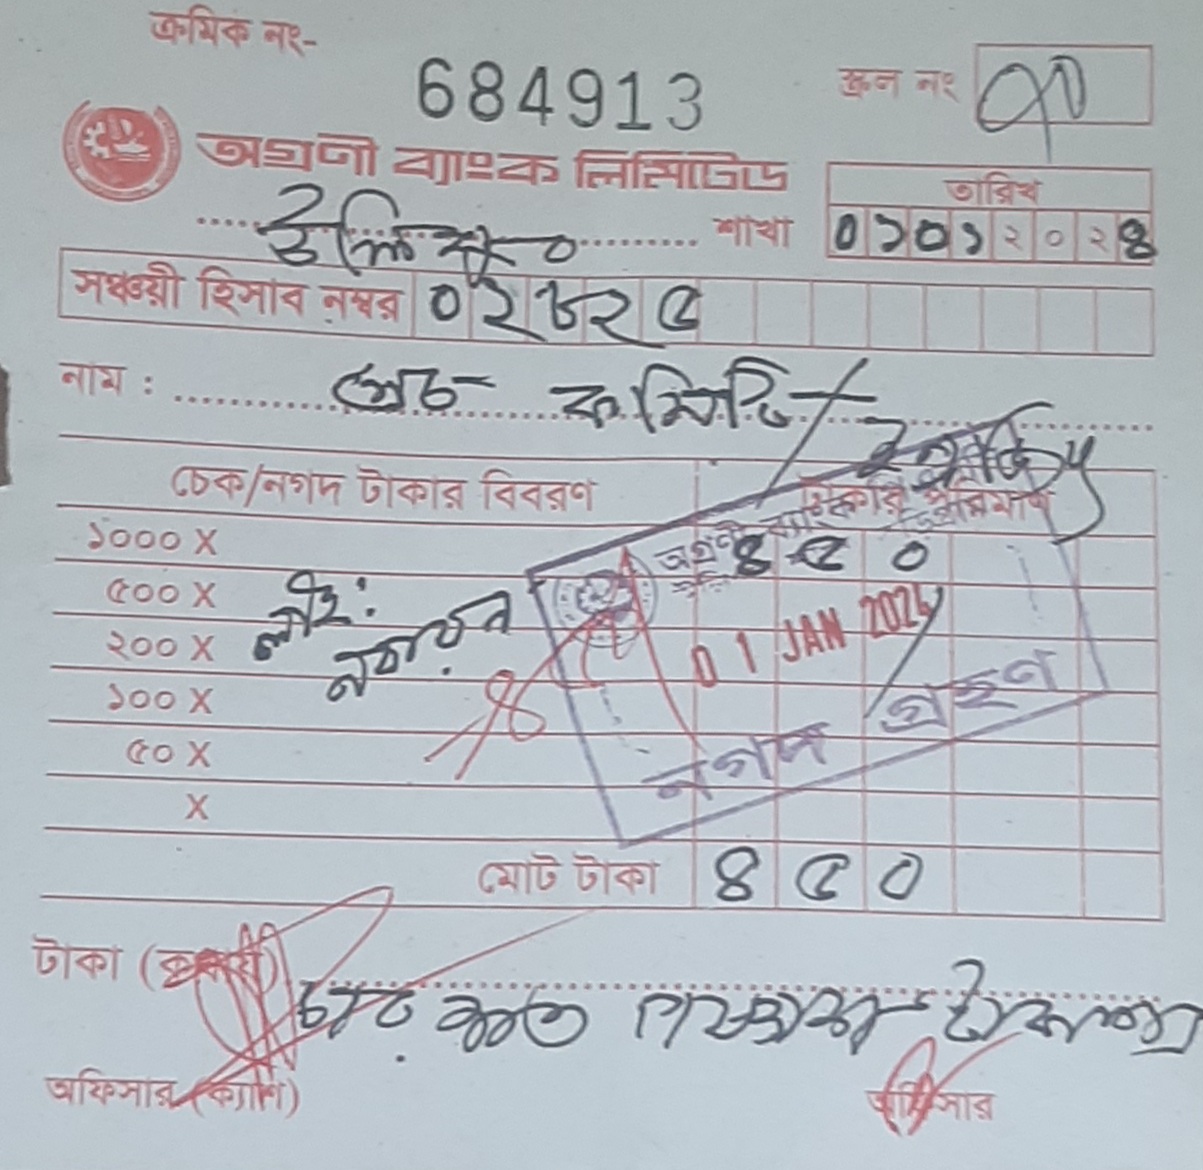 ক্রমিক নং-
684913
স্ক্রল নং
অগ্রণী ব্যাংক লিমিটেড
উলিপুর শাখা
তারিখ
০১০১২০২৪
সঞ্চয়ী হিসাব নম্বর ০২৮২৫
নাম :
চেক/নগদ টাকার বিবরণ
টাকার পরিমাণ
১০০০ X
৪৫০
৫০০ X
২০০ X
01 JAN 2024
১০০ X
৫০ X
নগদ গ্রহণ
X
মোট টাকা ৪৫০
টাকা (কথায়)
চার শত পঞ্চাশ টাকা মাত্র
অফিসার (ক্যাশ)
অফিসার